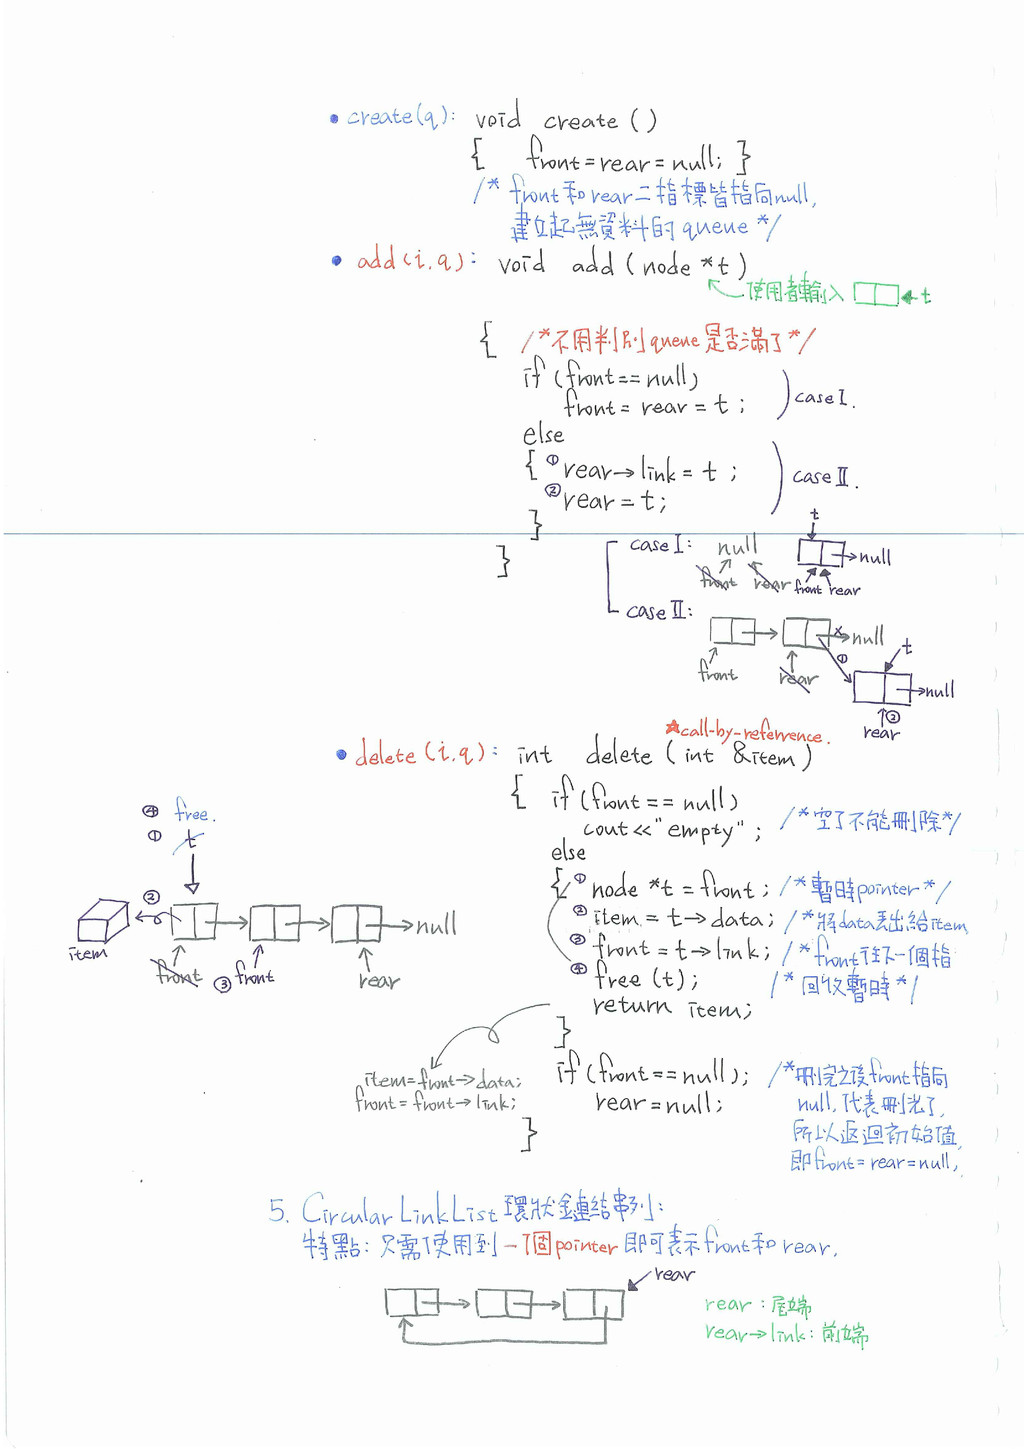 • create(q): void create ()
{ front=rear=null; }
/* front和rear二指標皆指向null,
建立起無資料的queue */
• add(i,q): void add (node *t)
使用者輸入 ← t
{ /*不用判別queue是否滿了*/
if (front==null)
front = rear = t ; ) case I.
else
{ ① rear→link = t ; ) case II.
② rear = t;
}
}
t
case I: null → null
front rear front rear
case II: × → null
front rear ① t → null
② rear
★call-by-reference.
• delete(i,q): int delete (int &item)
{ if (front == null)
cout << "empty" ; /*空了不能刪除*/
else
{ ① node *t = front ; /*暫時pointer*/
② item = t→data; /*將data丟出給item
③ front = t→link; /*front往下一個指
④ free (t); /*回收暫時*/
return item;
}
④ free.
① t
② → null
item front ③ front rear
item=front→data;
front = front→link;
if (front == null); /*刪完之後front指向
rear=null; null,代表刪光了,
} 所以返迴初始值,
即front=rear=null,
5. Circular Link List 環狀鏈結串列:
特點: 只需使用到一個pointer即可表示front和rear,
rear
rear : 尾端
rear→link : 前端